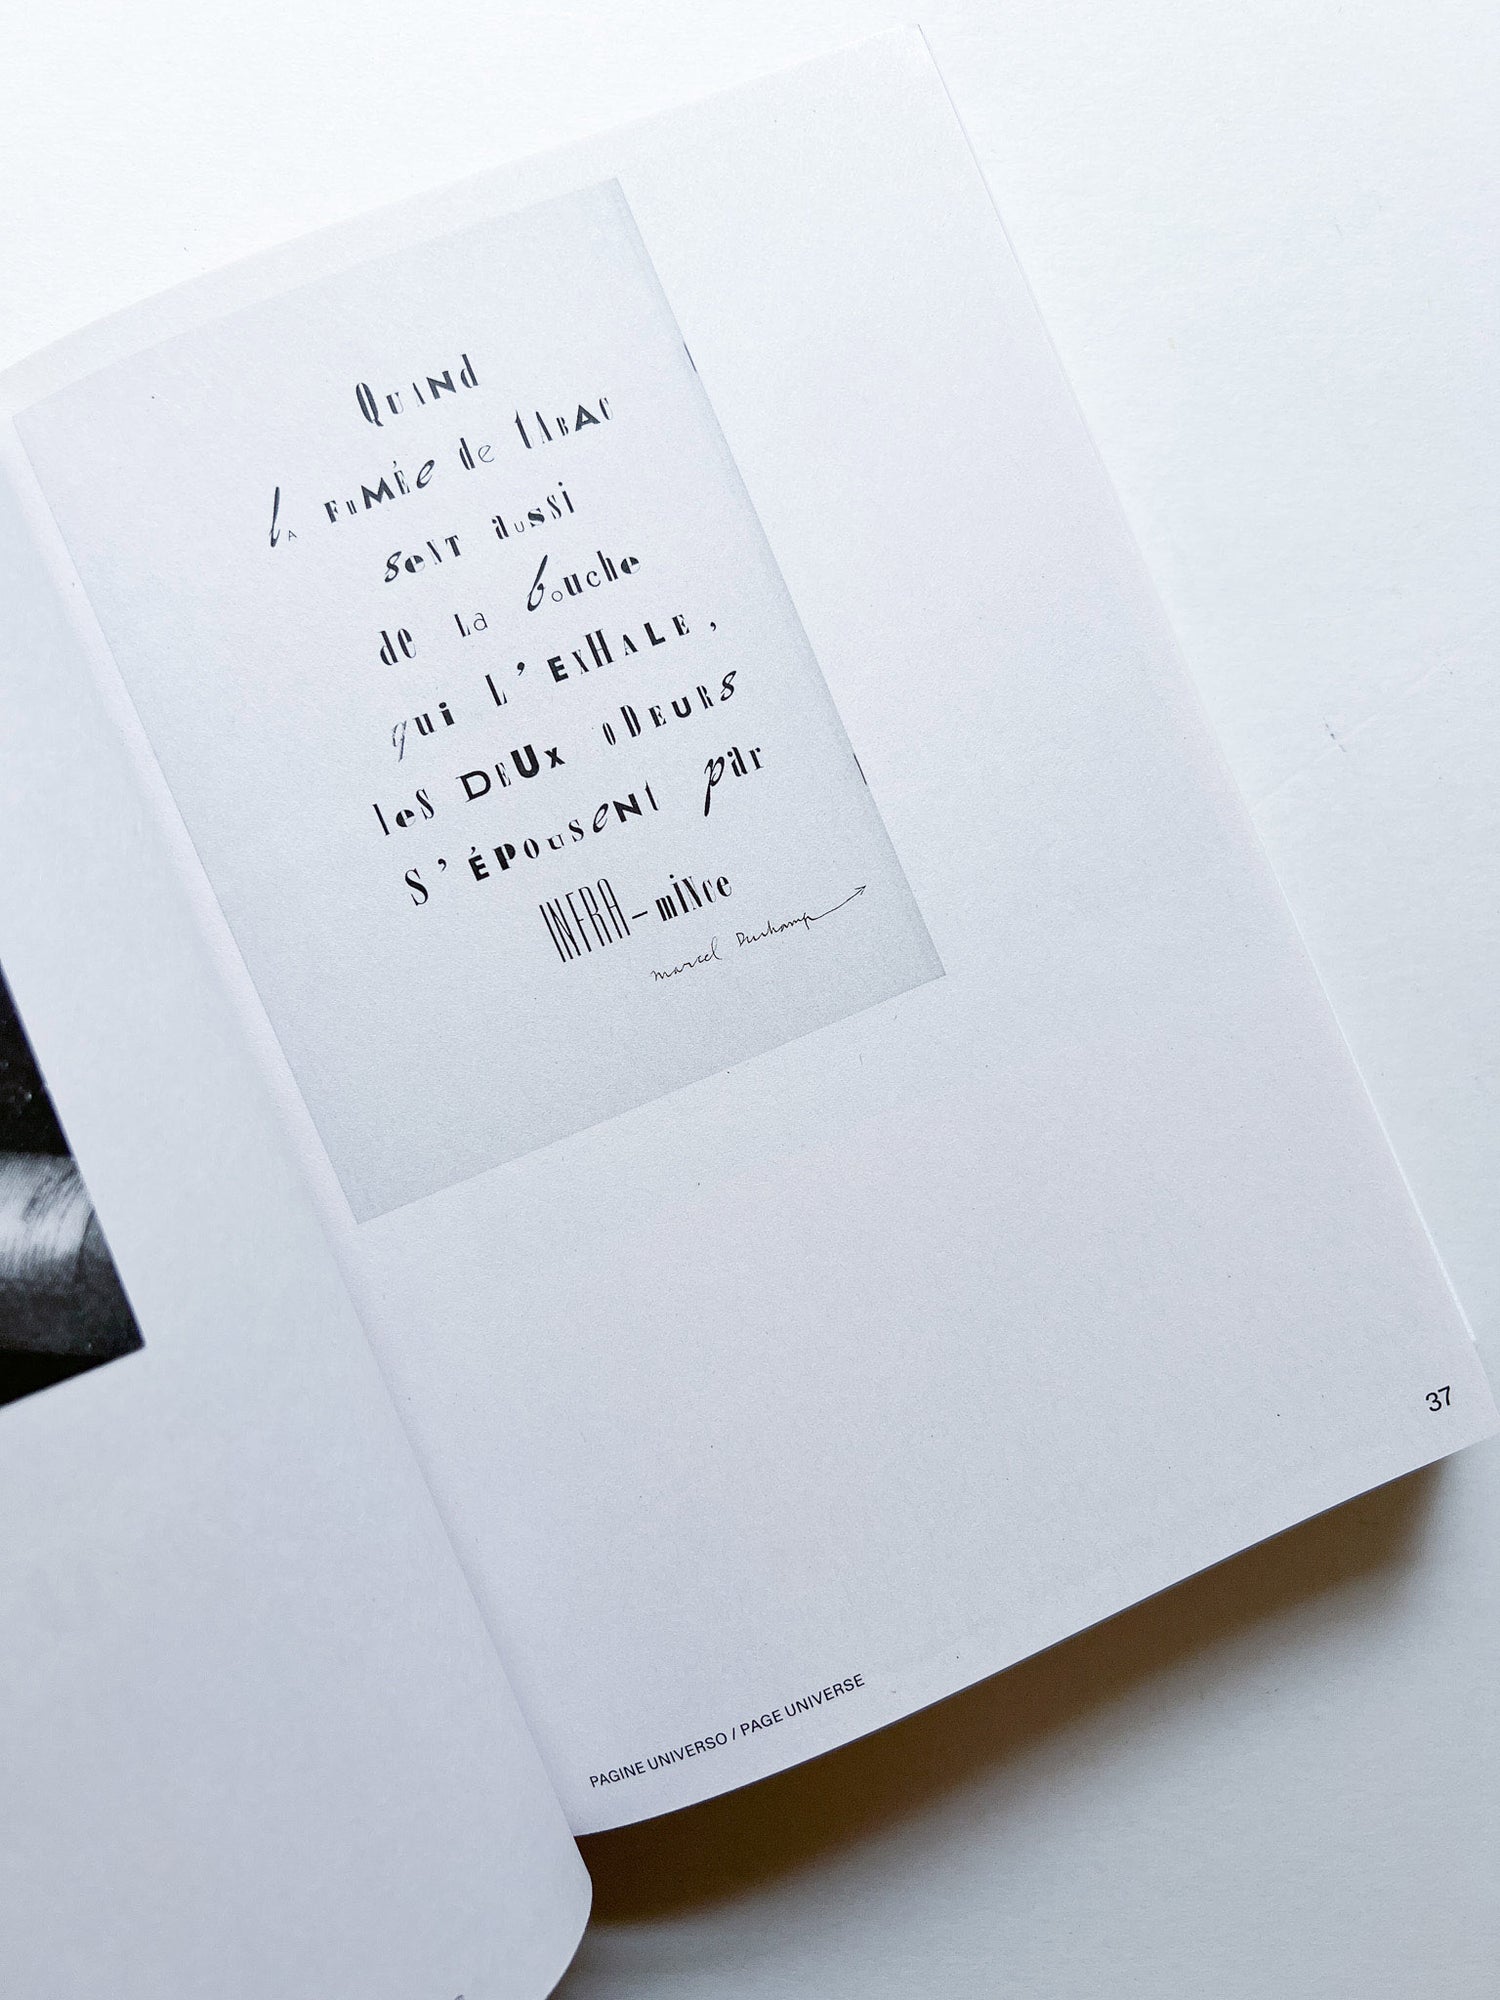 QuANd
lA FuMÉe de tABAC
seNT aussi
de La bouche
qui L'EXHALE,
les DEUx oDEURS
S'ÉPOUSENt par
INFRA-miNce
marcel Duchamp
37
PAGINE UNIVERSO / PAGE UNIVERSE